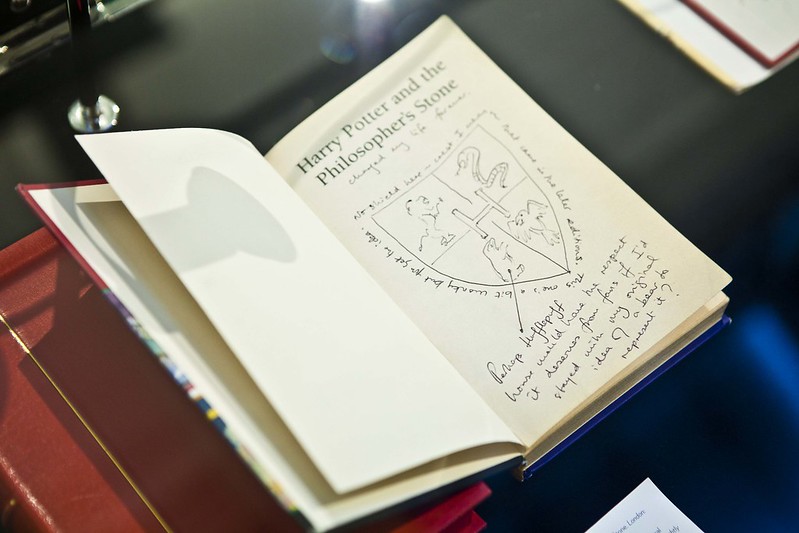 Harry Potter and the
Philosopher's Stone
changed my life forever.
No shield here – coat I mean – that came in the later editions.
This one's a bit wonky but you get the idea!
Perhaps Hufflepuff
house would have the respect
it deserves from fans if I'd
stayed with my original
idea of a bear to
represent it?
London